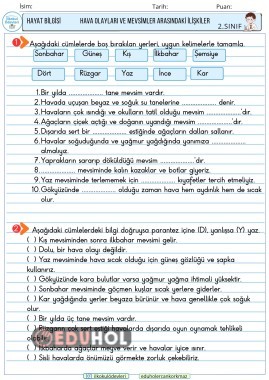 İsim: Tarih: Puan:
HAYAT BİLGİSİ HAVA OLAYLARI VE MEVSİMLER ARASINDAKİ İLİŞKİLER 2.SINIF
1 Aşağıdaki cümlelerde boş bırakılan yerleri, uygun kelimelerle tamamla.
Sonbahar Güneş Kış İlkbahar Şemsiye
Dört Rüzgar Yaz İnce Kar
1.Bir yılda .............. tane mevsim vardır.
2.Havada uçuşan beyaz ve soğuk su tanelerine .............. denir.
3.Havaların çok ısındığı ve okulların tatil olduğu mevsim ..............'dır.
4.Ağaçların çiçek açtığı ve doğanın uyandığı mevsim ..............'dır.
5.Dışarıda sert bir .............. estiğinde ağaçların dalları sallanır.
6.Havalar soğuduğunda ve yağmur yağdığında yanımıza ..............
almalıyız.
7.Yaprakların sararıp döküldüğü mevsim ..............'dır.
8. .............. mevsiminde kalın kazaklar ve botlar giyeriz.
9.Yaz mevsiminde terlememek için .............. kıyafetler tercih etmeliyiz.
10.Gökyüzünde .............. olduğu zaman hava hem aydınlık hem de sıcak
olur.
2 Aşağıdaki cümlelerdeki bilgi doğruysa parantez içine (D), yanlışsa (Y) yaz.
( ) Kış mevsiminden sonra ilkbahar mevsimi gelir.
( ) Dolu, bir hava olayı değildir.
( ) Yaz mevsiminde hava sıcak olduğu için güneş gözlüğü ve şapka
kullanırız.
( ) Gökyüzünde kara bulutlar varsa yağmur yağma ihtimali yüksektir.
( ) Sonbahar mevsiminde göçmen kuşlar sıcak yerlere giderler.
( ) Kar yağdığında yerler beyaza bürünür ve hava genellikle çok soğuk
olur.
( ) Bir yılda üç tane mevsim vardır.
( ) Rüzgarın çok sert estiği havalarda dışarıda oyun oynamak tehlikeli
olabilir.
EDUHOL
( ) İlkbaharda ağaçlar meyve verir ve havalar iyice ısınır.
( ) Sisli havalarda önümüzü görmekte zorluk çekebiliriz.